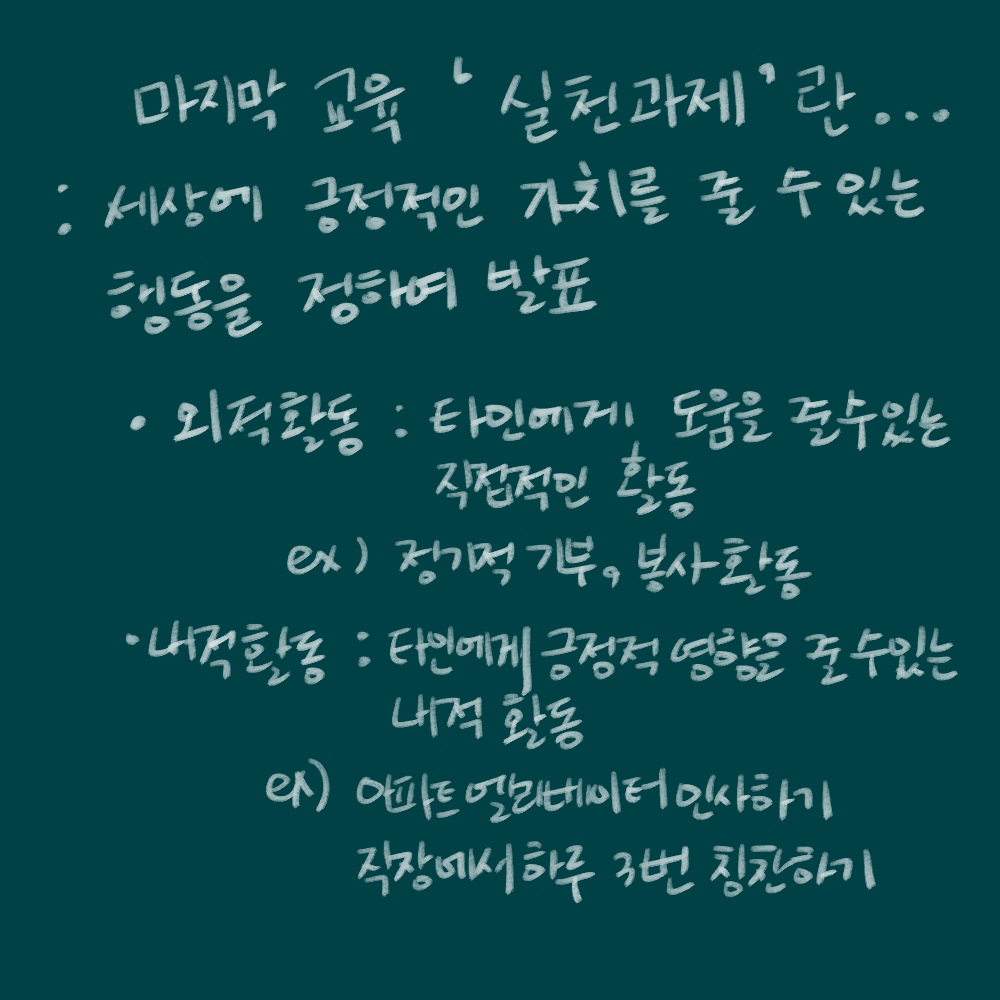 마지막 교육 '실천과제'란...
: 세상에 긍정적인 가치를 줄 수 있는
행동을 정하여 발표
• 외적활동 : 타인에게 도움을 줄수있는
직접적인 활동
ex) 정기적 기부, 봉사활동
• 내적활동 : 타인에게 긍정적 영향을 줄수있는
내적 활동
ex) 아파트 엘리베이터 인사하기
직장에서 하루 3번 칭찬하기